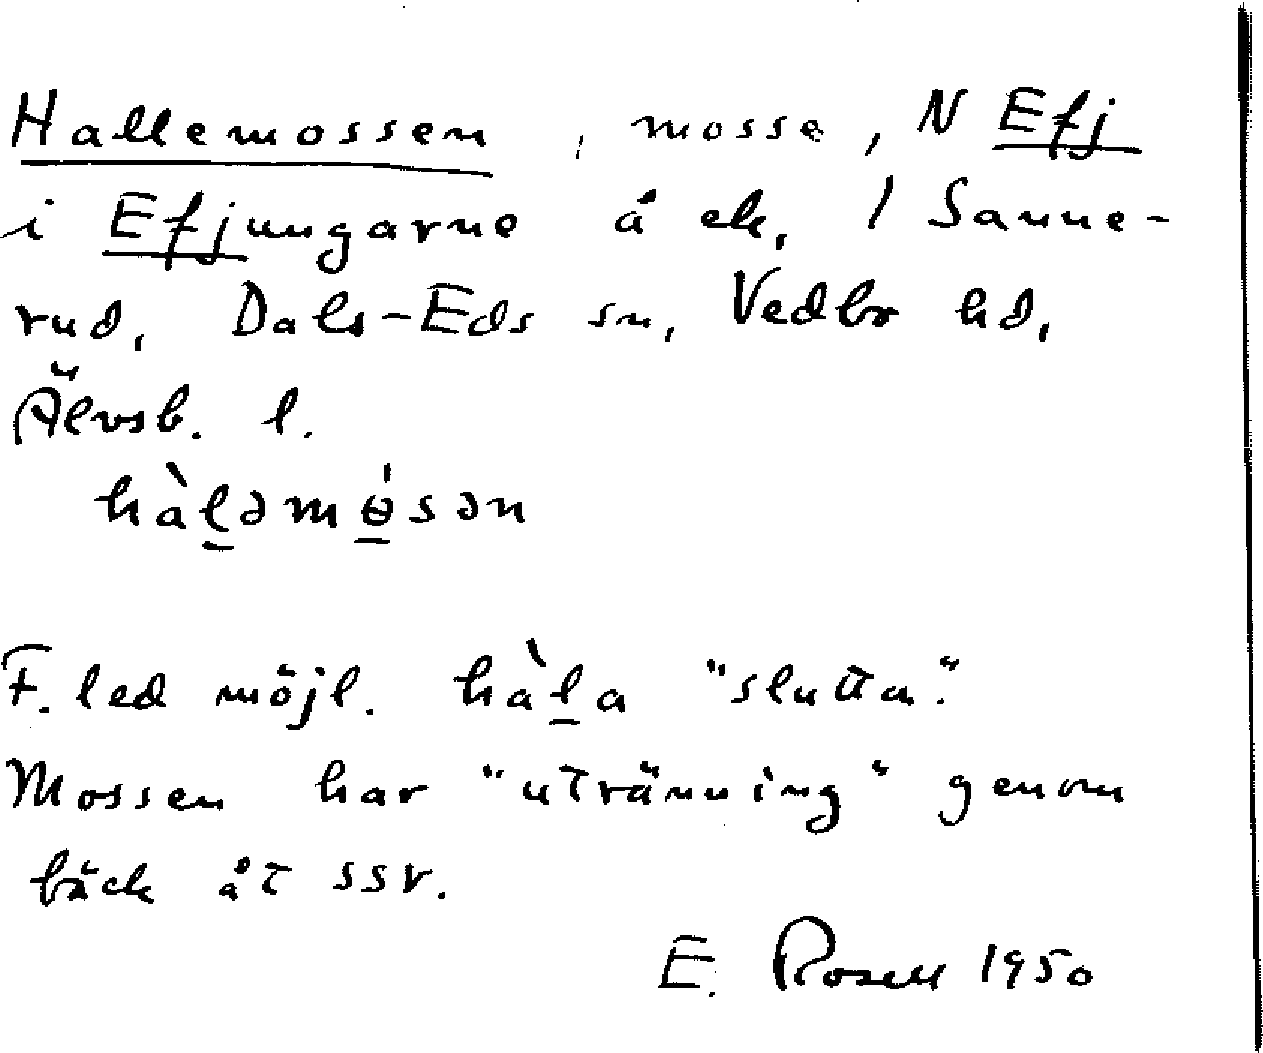 Hallemossen, mosse, N Efj
i Efjungarne å ek, / Sanne-
rud, Dals-Eds sn, Vedbo hd,
Älvsb. l.
hàl̠əmɵ̠́sən
F. led möjl. hàl̠a "slutta".
Mossen har "utränning" genom
bäck åt SSV.
E. Rosell 1950